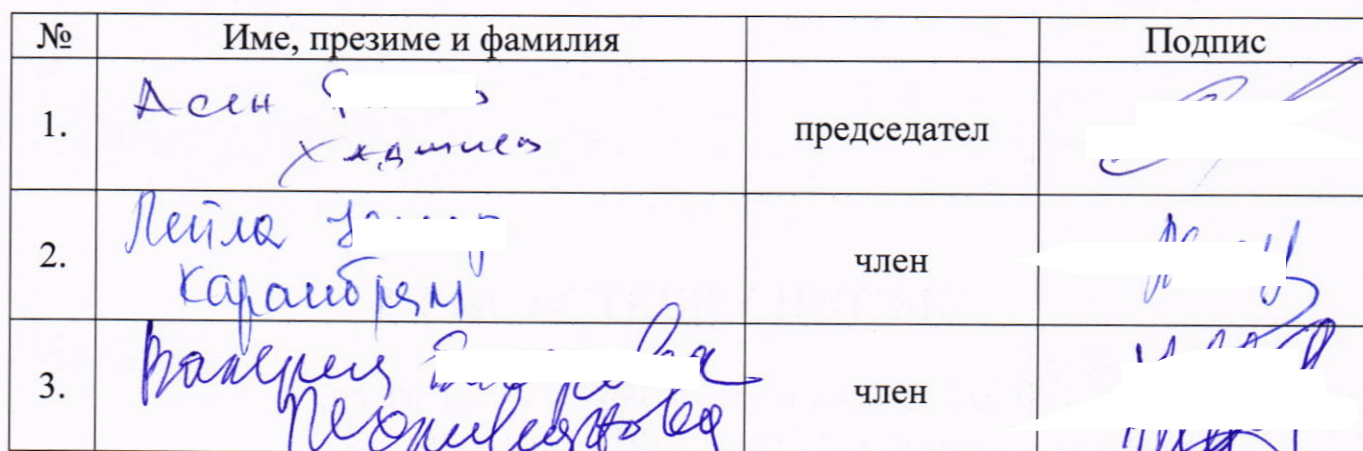 № Име, презиме и фамилия Подпис
1. Асен
Хаджиев председател
2. Лейла
Караибрям член
3. Валерия
член